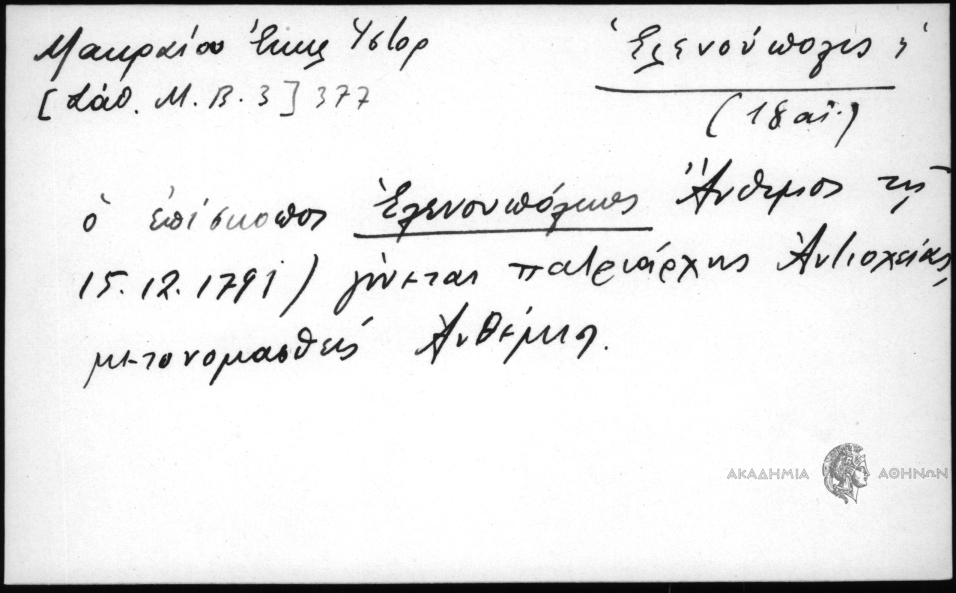 Μακραίου Ἐκκλ Ὑστορ
[Σάθ. Μ. Β. 3] 377
Ἑλενούπολις ἡ
(18 αἰ.)
ὁ ἐπίσκοπος Ἑλενουπόλεως Ἄνθιμος τῇ
15.12.1791) γίνεται πατριάρχης Ἀντιοχείας
μετονομασθεὶς Ἀνθέμιο.
ΑΚΑΔΗΜΙΑ ΑΘΗΝΩΝ